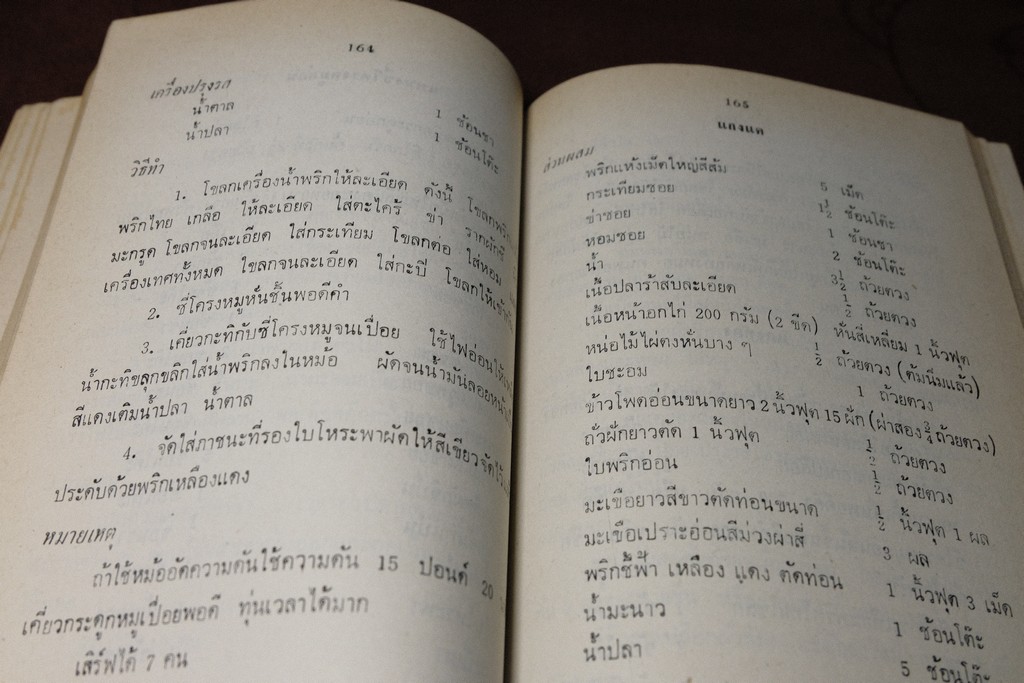 164
เครื่องปรุงรส
น้ำตาล 1 ช้อนชา
น้ำปลา 1 ช้อนโต๊ะ
วิธีทำ
1. โขลกเครื่องน้ำพริกให้ละเอียด ดังนี้ โขลกพริก
พริกไทย เกลือ ให้ละเอียด ใส่ตะไคร้ ข่า รากผักชี
มะกรูด โขลกจนละเอียด ใส่กระเทียม โขลกต่อ ใส่หอม
เครื่องเทศทั้งหมด โขลกจนละเอียด ใส่กะปิ โขลกให้เข้ากัน
2. ซี่โครงหมูหั่นชิ้นพอดีคำ
3. เคี่ยวกะทิกับซี่โครงหมูจนเปื่อย ใช้ไฟอ่อน
น้ำกะทิขลุกขลิกใส่น้ำพริกลงในหม้อ ผัดจนน้ำมันลอยหน้า
สีแดงเติมน้ำปลา น้ำตาล
4. จัดใส่ภาชนะที่รองใบโหระพาผัดให้สีเขียวจัดไว้
ประดับด้วยพริกเหลืองแดง
หมายเหตุ
ถ้าใช้หม้ออัดความดันใช้ความดัน 15 ปอนด์ 20
เคี่ยวกระดูกหมูเปื่อยพอดี ทุ่นเวลาได้มาก
เสิร์ฟได้ 7 คน
165
แกงแค
ส่วนผสม
พริกแห้งเม็ดใหญ่สีส้ม 5 เม็ด
กระเทียมซอย 1½ ช้อนโต๊ะ
ข่าซอย 1 ช้อนชา
หอมซอย 2 ช้อนโต๊ะ
น้ำ 3½ ถ้วยตวง
เนื้อปลาร้าสับละเอียด ½ ถ้วยตวง
เนื้อหน้าอกไก่ 200 กรัม (2 ขีด) หั่นสี่เหลี่ยม 1 นิ้วฟุต
หน่อไม้ไผ่ตงหั่นบาง ๆ ½ ถ้วยตวง (ต้มนิ่มแล้ว)
ใบชะอม 1 ถ้วยตวง
ข้าวโพดอ่อนขนาดยาว 2 นิ้วฟุต 15 ฝัก (ผ่าสอง ¾ ถ้วยตวง)
ถั่วฝักยาวตัด 1 นิ้วฟุต ½ ถ้วยตวง
ใบพริกอ่อน ½ ถ้วยตวง
มะเขือยาวสีขาวตัดท่อนขนาด ½ นิ้วฟุต 1 ผล
มะเขือเปราะอ่อนสีม่วงผ่าสี่ 3 ผล
พริกชี้ฟ้า เหลือง แดง ตัดท่อน 1 นิ้วฟุต 3 เม็ด
น้ำมะนาว 1 ช้อนโต๊ะ
น้ำปลา 5 ช้อนโต๊ะ